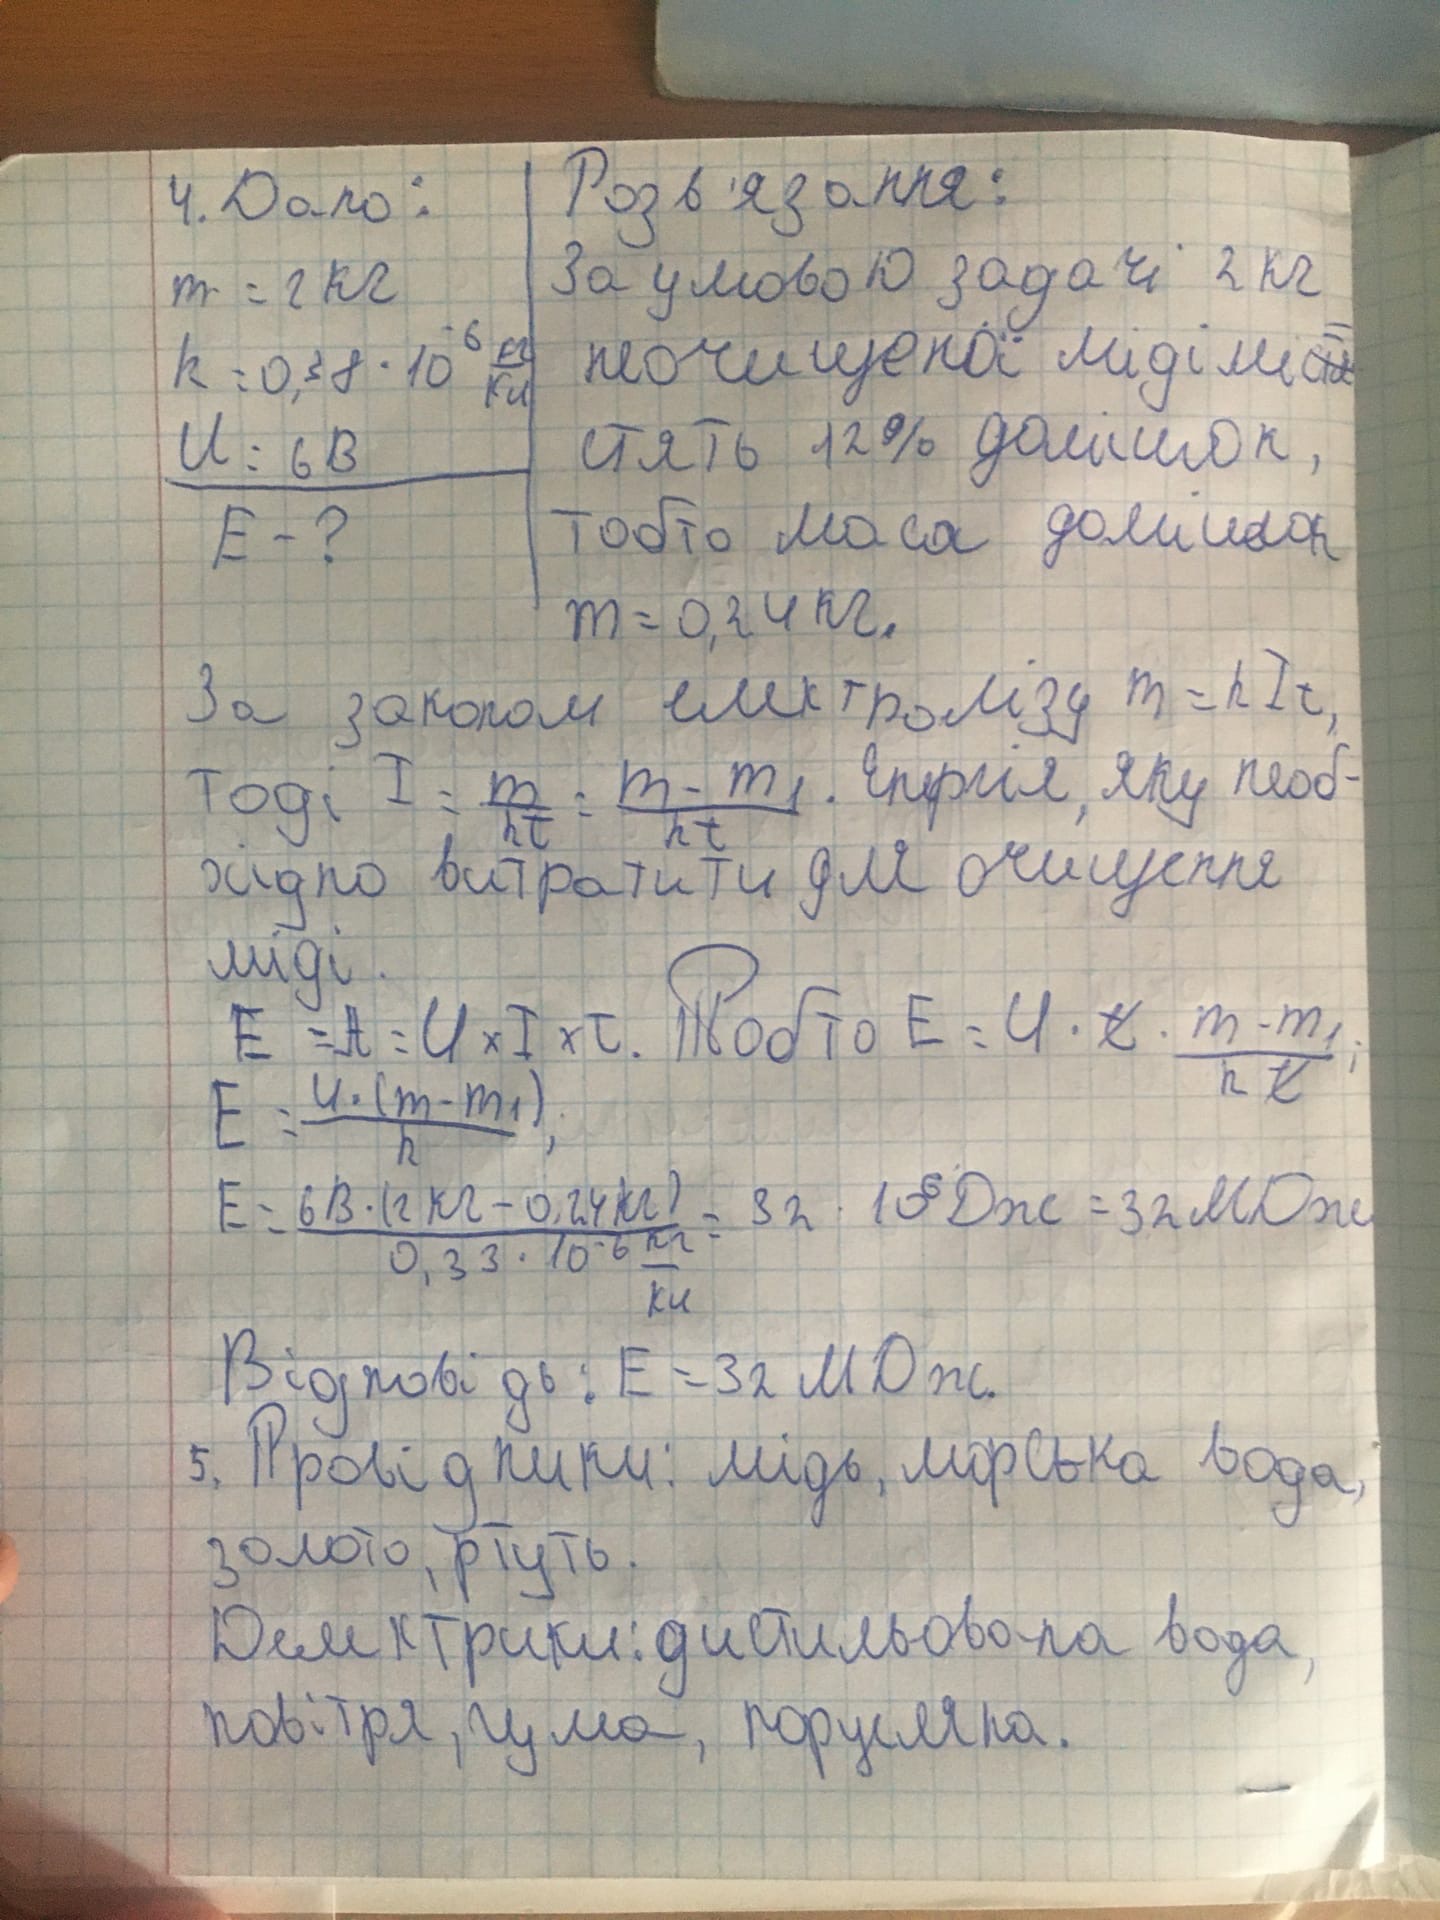 4. Дано:
Розв'язання:
m = 2 кг
За умовою задачі 2 кг
k = 0,38 · 10⁻⁶ кг/Кл
неочищеної міді мі
U = 6 В
стять 12% домішок,
E - ?
тобто маса домішок
m = 0,24 кг.
За законом електролізу m = kIt,
тоді I = m/kt = m - m₁/kt. Енергія, яку необ-
хідно витратити для очищення
міді.
E = A = U × I × t. Тобто E = U · t · m - m₁/kt;
E = U · (m - m₁)/k;
E = 6В · (2 кг - 0,24 кг)/0,33 · 10⁻⁶ кг/Кл = 32 · 10⁶ Дж = 32 МДж
Відповідь: E = 32 МДж.
5. Провідники: мідь, морська вода,
золото, ртуть.
Діелектрики: дистильована вода,
повітря, гума, порцеляна.